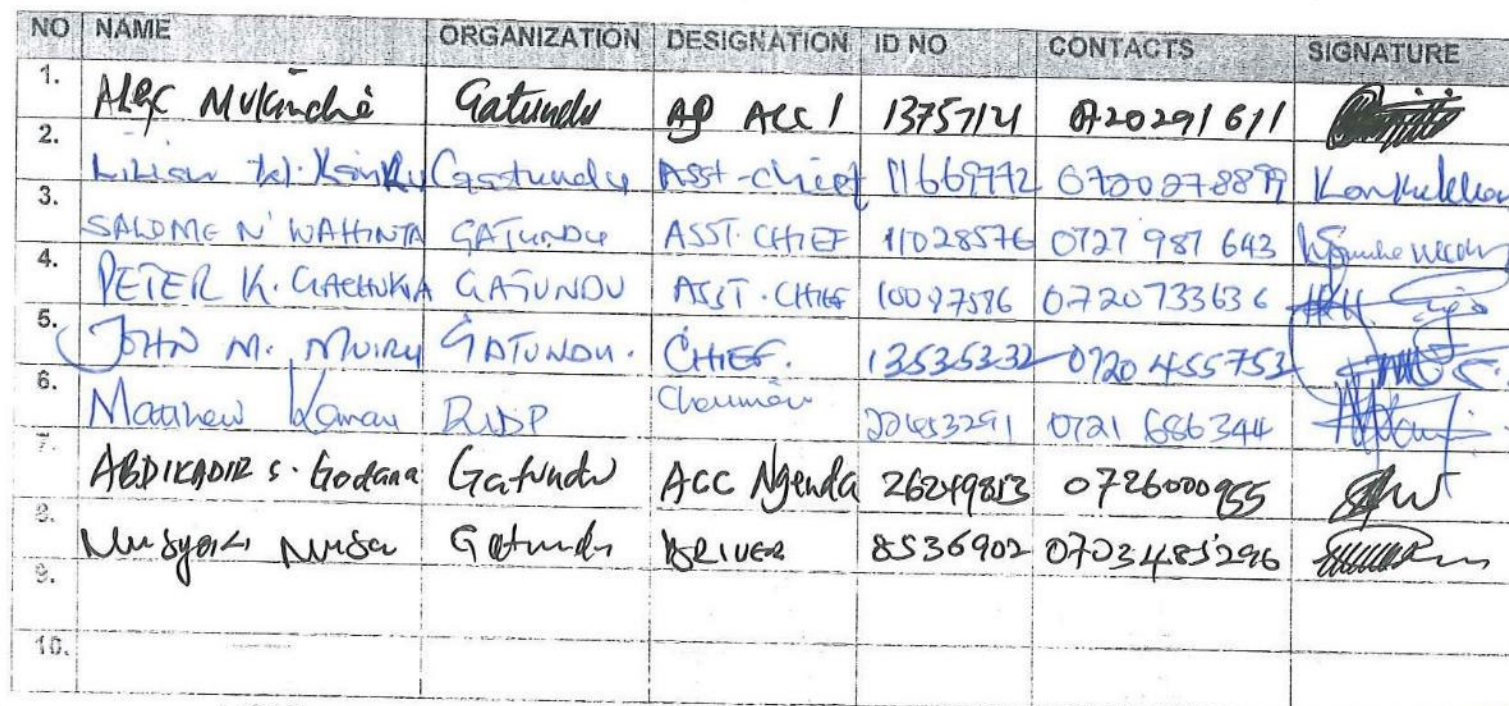 NO NAME ORGANIZATION DESIGNATION ID NO CONTACTS SIGNATURE
1. Alex Mukindia Gatundu AP ACC 1 13757121 0720291611
2. Lilian W. Gatundu Asst-chief 11669772 0720078899
3. SALOME N' WAHINTA GATUNDU ASST. CHIEF 11028576 0727 987 643
4. PETER K. GACHUKIA GATUNDU ASST. CHIEF 10097586 0720733636
5. JOHN M. MUIRU GATUNDU. CHIEF. 13535332 0720 455753
6. Matthew Kamau Chairman 0721 686344
7. ABDIKADIR S. Godana Gatundu ACC Ngenda 26249813 0726000955
8. Musa Gatundu DRIVER 8536902 0703485296
9.
10.